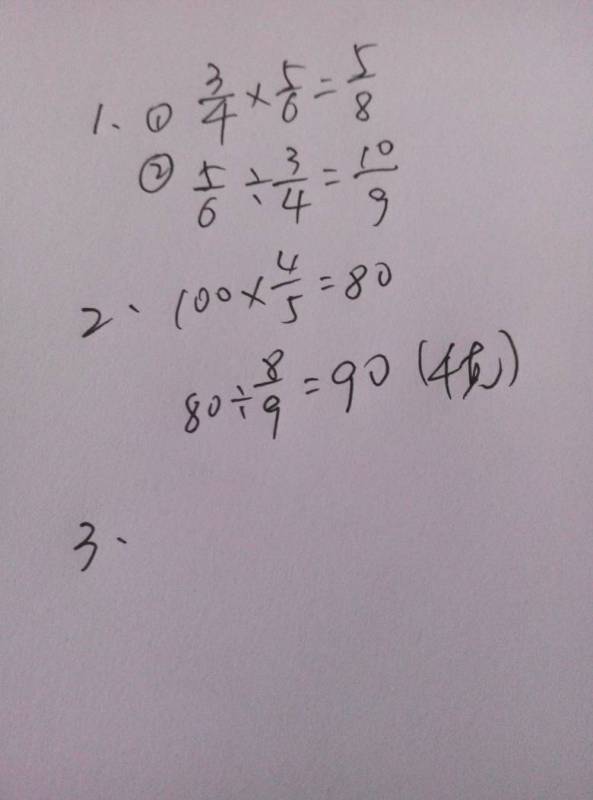 1. ① 3/4 × 5/6 = 5/8
② 5/6 ÷ 3/4 = 10/9
2、100 × 4/5 = 80
80 ÷ 8/9 = 90 (千克)
3.